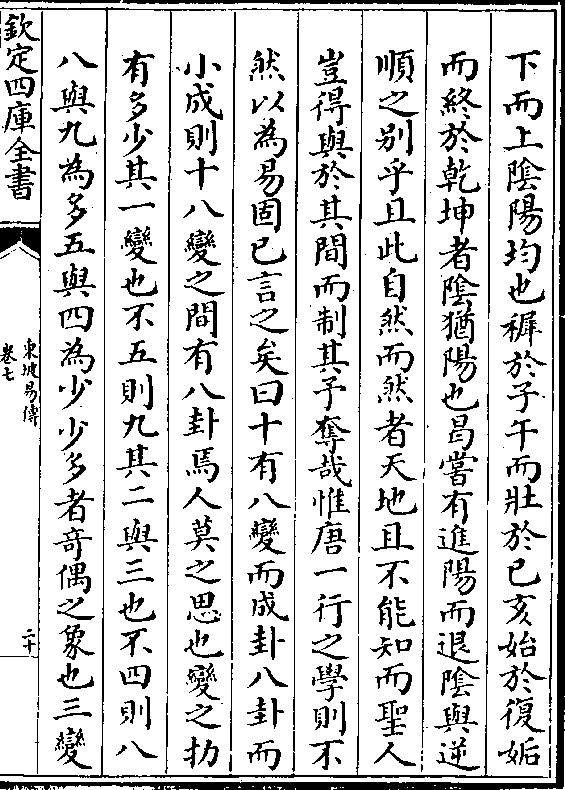 下而上陰陽均也穉於子午而壯於巳亥始於復姤
而終於乾坤者陰猶陽也曷嘗有進陽而退陰與逆
順之别乎且此自然而然者天地且不能知而聖人
豈得與於其間而制其予奪哉惟唐一行之學則不
然以為易固已言之矣曰十有八變而成卦八卦而
小成則十八變之間有八卦焉人莫之思也變之扐
有多少其一變也不五則九其二與三也不四則八
八與九為多五與四為少少多者奇偶之象也三變
欽定四庫全書
東坡易傳
卷七
二十